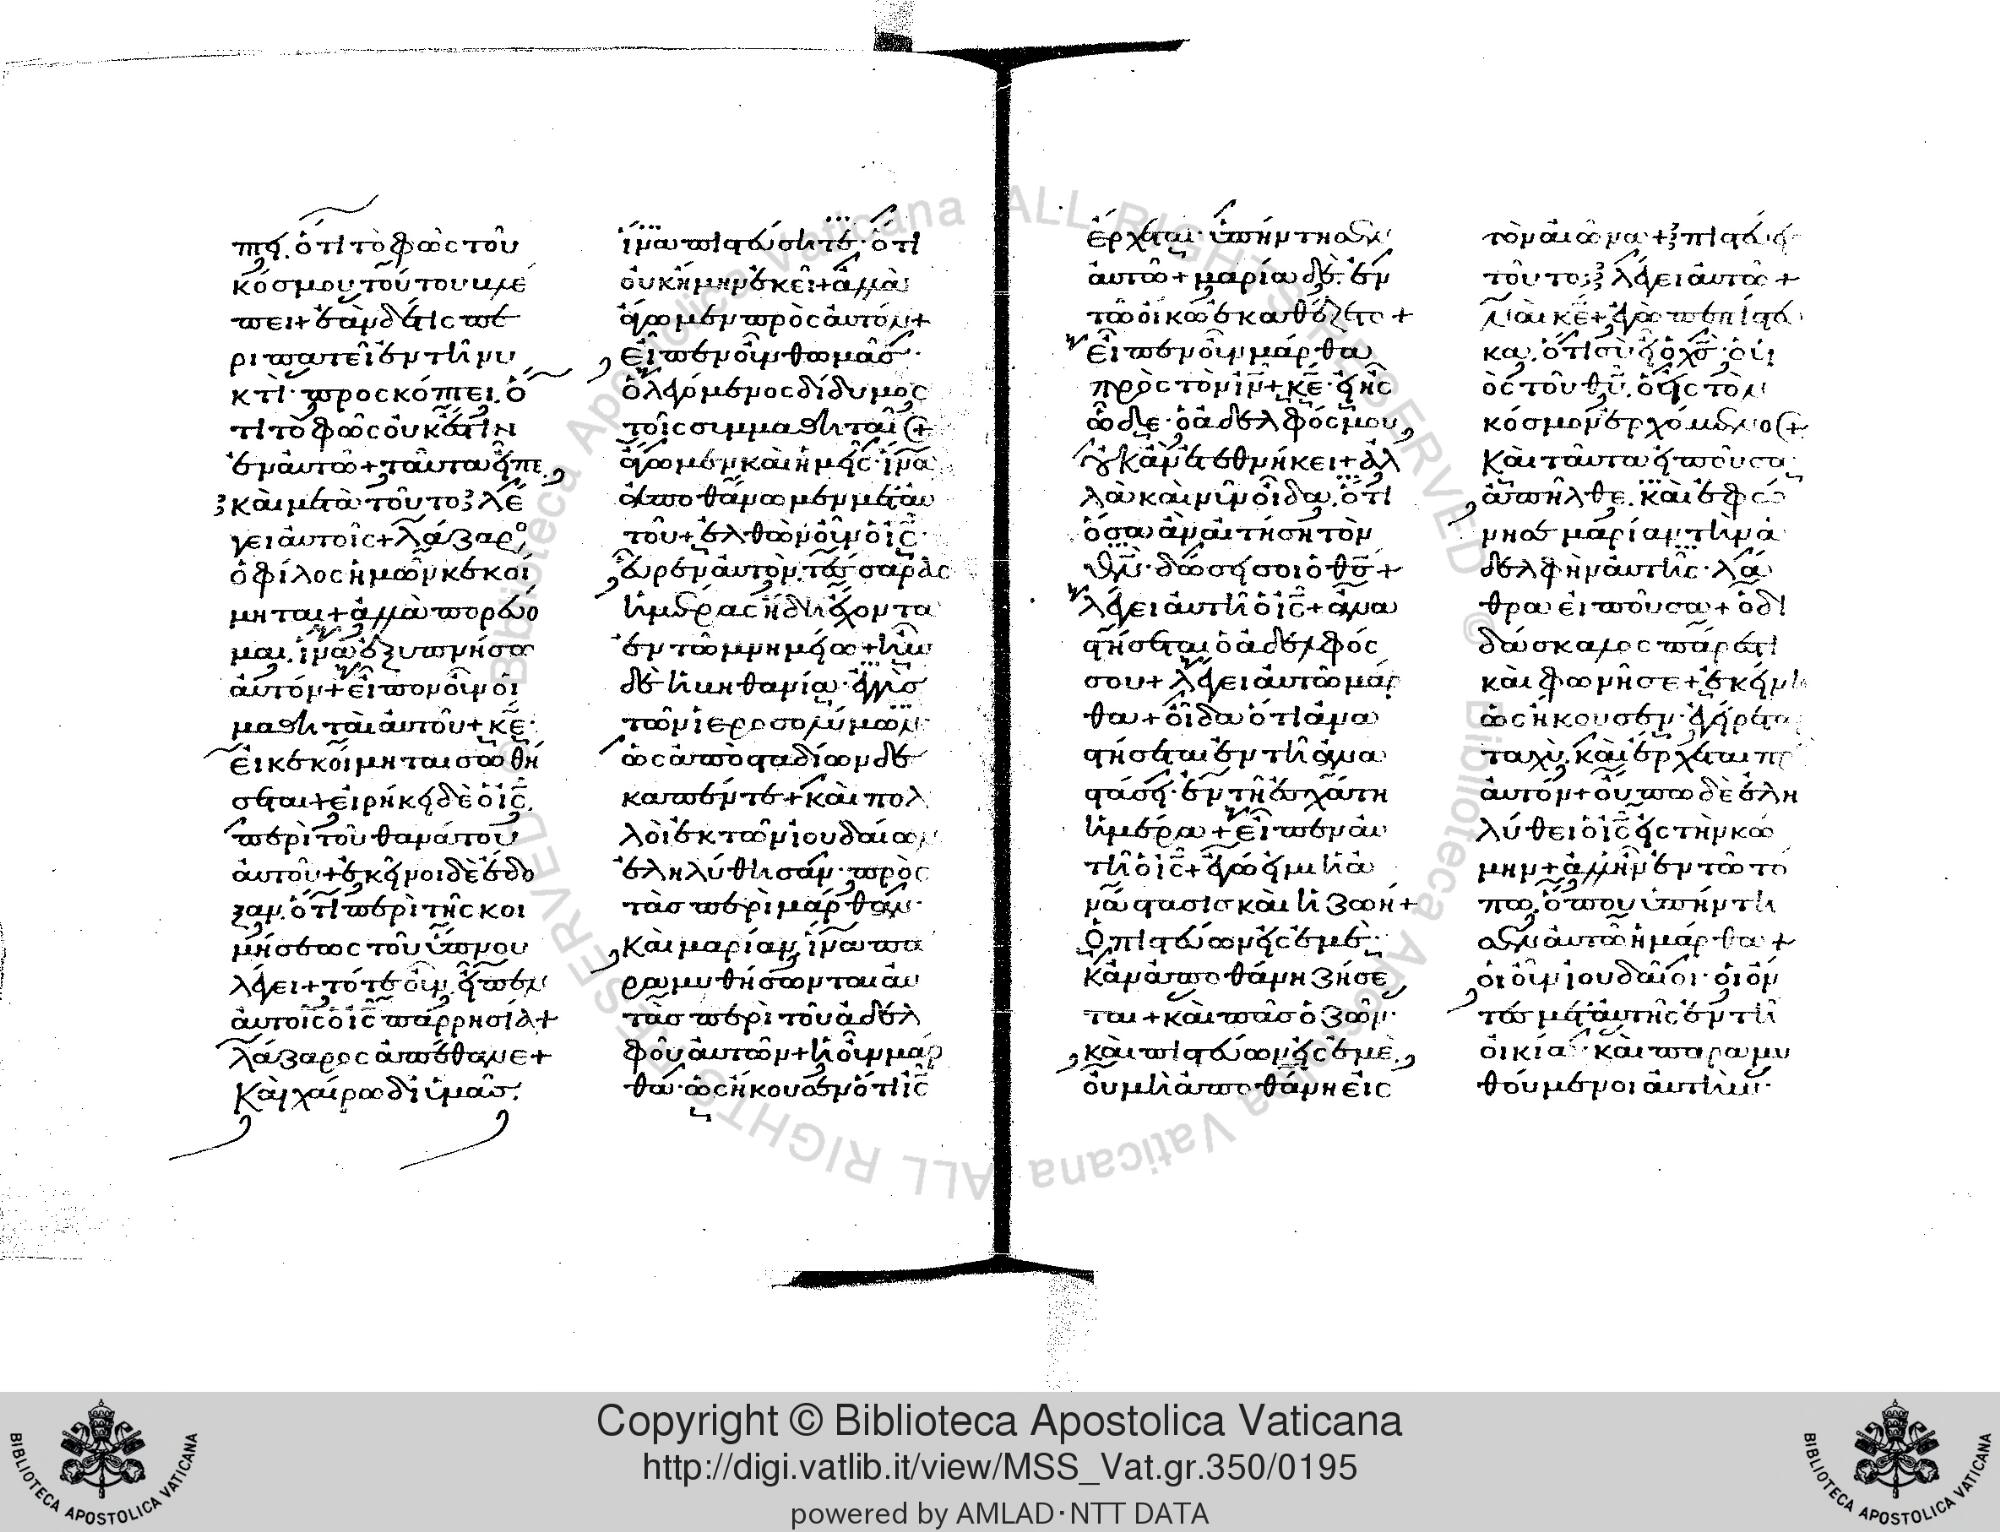 πτει. ὅτι τὸ φῶς τοῦ
κόσμου τούτου βλέ
πει + ἐὰν δέ τις πε
ριπατεῖ ἐν τῆ νυ
κτὶ· προσκόπτει. ὅ
τι τὸ φῶς οὐκ ἔστιν
ἐν αὐτῶ + ταῦτα εἶπε,
καὶ μετὰ τοῦτο λέ
γει αὐτοῖς + λάζαρος
ὁ φίλος ἡμῶν κεκοί
μηται + ἀλλὰ πορεύο
μαι. ἵνα ἐξυπνήσω
αὐτόν + εἶπον οὖν οἱ
μαθηταὶ αὐτοῦ + κε·
εἰ κεκοίμηται σωθή
σεται + εἰρήκει δὲ ὁ ις.
περὶ τοῦ θανάτου
αὐτοῦ + ἐκεῖνοι δὲ ἔδο
ξαν. ὅτι περὶ τῆς κοι
μήσεως τοῦ ὕπνου
λέγει + τότε οὖν εἶπεν
αὐτοῖς ὁ ις παρρησία +
λάζαρος ἀπέθανε +
Καὶ χαίρω δι ὑμᾶς.
ἵνα πιστεύσητε· ὅτι
οὐκ ἤμην ἐκεῖ + ἀλλὰ
ἄγωμεν πρὸς αὐτόν +
εἶπεν οὖν θωμᾶς·
ὁ λεγόμενος δίδυμος
τοῖς συμμαθηταῖς +
ἄγωμεν καὶ ἡμεῖς· ἵνα
ἀποθάνωμεν μετ αὐ
τοῦ + ἐλθὼν οὖν ὁ ις·
εὗρεν αὐτὸν. τέσσαρας
ἡμέρας ἤδη ἔχοντα
ἐν τῶ μνημείω + ἦν
δὲ ἡ βηθανία· ἐγγὺς
τῶν ἱεροσολύμων·
ὡς ἀπὸ σταδίων δε
καπέντε + καὶ πολ
λοὶ ἐκ τῶν ἰουδαίων
ἐληλύθησαν· πρὸς
τὰς περὶ μάρθαν·
καὶ μαρίαν, ἵνα πα
ραμυθήσωνται αὐ
τὰς περὶ τοῦ ἀδελ
φοῦ αὐτῶν + ἡ οὖν μάρ
θα· ὡς ἤκουσεν ὅτι ις
ἔρχεται· ὑπήντησεν
αὐτῶ + μαρία δὲ· ἐν
τῶ οἴκω ἐκαθέζετο +
εἶπεν οὖν μάρθα
πρὸς τὸν ιν + κε· εἰ ἦς
ὧδε· ὁ ἀδελφός μου,
οὐκ ἂν ἐτεθνήκει + ἀλ
λὰ καὶ νῦν οἶδα. ὅτι
ὅσα ἂν αἰτήση τὸν
θν· δώσει σοι ὁ θς +
λέγει αὐτῆ ὁ ις + ἀνα
στήσεται ὁ ἀδελφός
σου + λέγει αὐτῶ μάρ
θα + οἶδα ὅτι ἀνα
στήσεται ἐν τῆ ἀνα
στάσει· ἐν τῆ ἐσχάτη
ἡμέρα + εἶπεν αὐ
τῆ ὁ ις + ἐγώ εἰμι ἡ ἀ
νάστασις καὶ ἡ ζωή +
Ὁ πιστεύων εἰς ἐμὲ·
κἂν ἀποθάνη ζήσε
ται + καὶ πᾶς ὁ ζῶν·
καὶ πιστεύων εἰς ἐμὲ,
οὐ μὴ ἀποθάνη εἰς
τὸν αἰῶνα + πιστεύεις
τοῦτο; λέγει αὐτῶ +
ναὶ κε + ἐγὼ πεπίστευ
κα. ὅτι σὺ εἶ ὁ χς· ὁ υἱ
ὸς τοῦ θυ. ὁ εἰς τὸν
κόσμον ἐρχόμενος +
Καὶ ταῦτα εἰποῦσα
ἀπῆλθε. καὶ ἐφώ
νησε μαρίαν τὴν ἀ
δελφὴν αὐτῆς· λά
θρα εἰποῦσα + ὁ δι
δάσκαλος πάρεστι
καὶ φωνῆ σε + ἐκείνη
ὡς ἤκουσεν· ἐγείρεται
ταχὺ. καὶ ἔρχεται πρ
αὐτόν + οὔπω δὲ ἐλη
λύθει ὁ ις εἰς τὴν κώ
μην + ἀλλ ἦν ἐν τῶ τό
πω. ὅπου ὑπήντη
σεν αὐτῶ ἡ μάρθα +
οἱ οὖν ἰουδαῖοι· οἱ ὄν
τες μετ αὐτῆς ἐν τῆ
οἰκία· καὶ παραμυ
θούμενοι αὐτὴν·
Copyright © Biblioteca Apostolica Vaticana
http://digi.vatlib.it/view/MSS_Vat.gr.350/0195
powered by AMLAD·NTT DATA
BIBLIOTECA APOSTOLICA VATICANA
BIBLIOTECA APOSTOLICA VATICANA